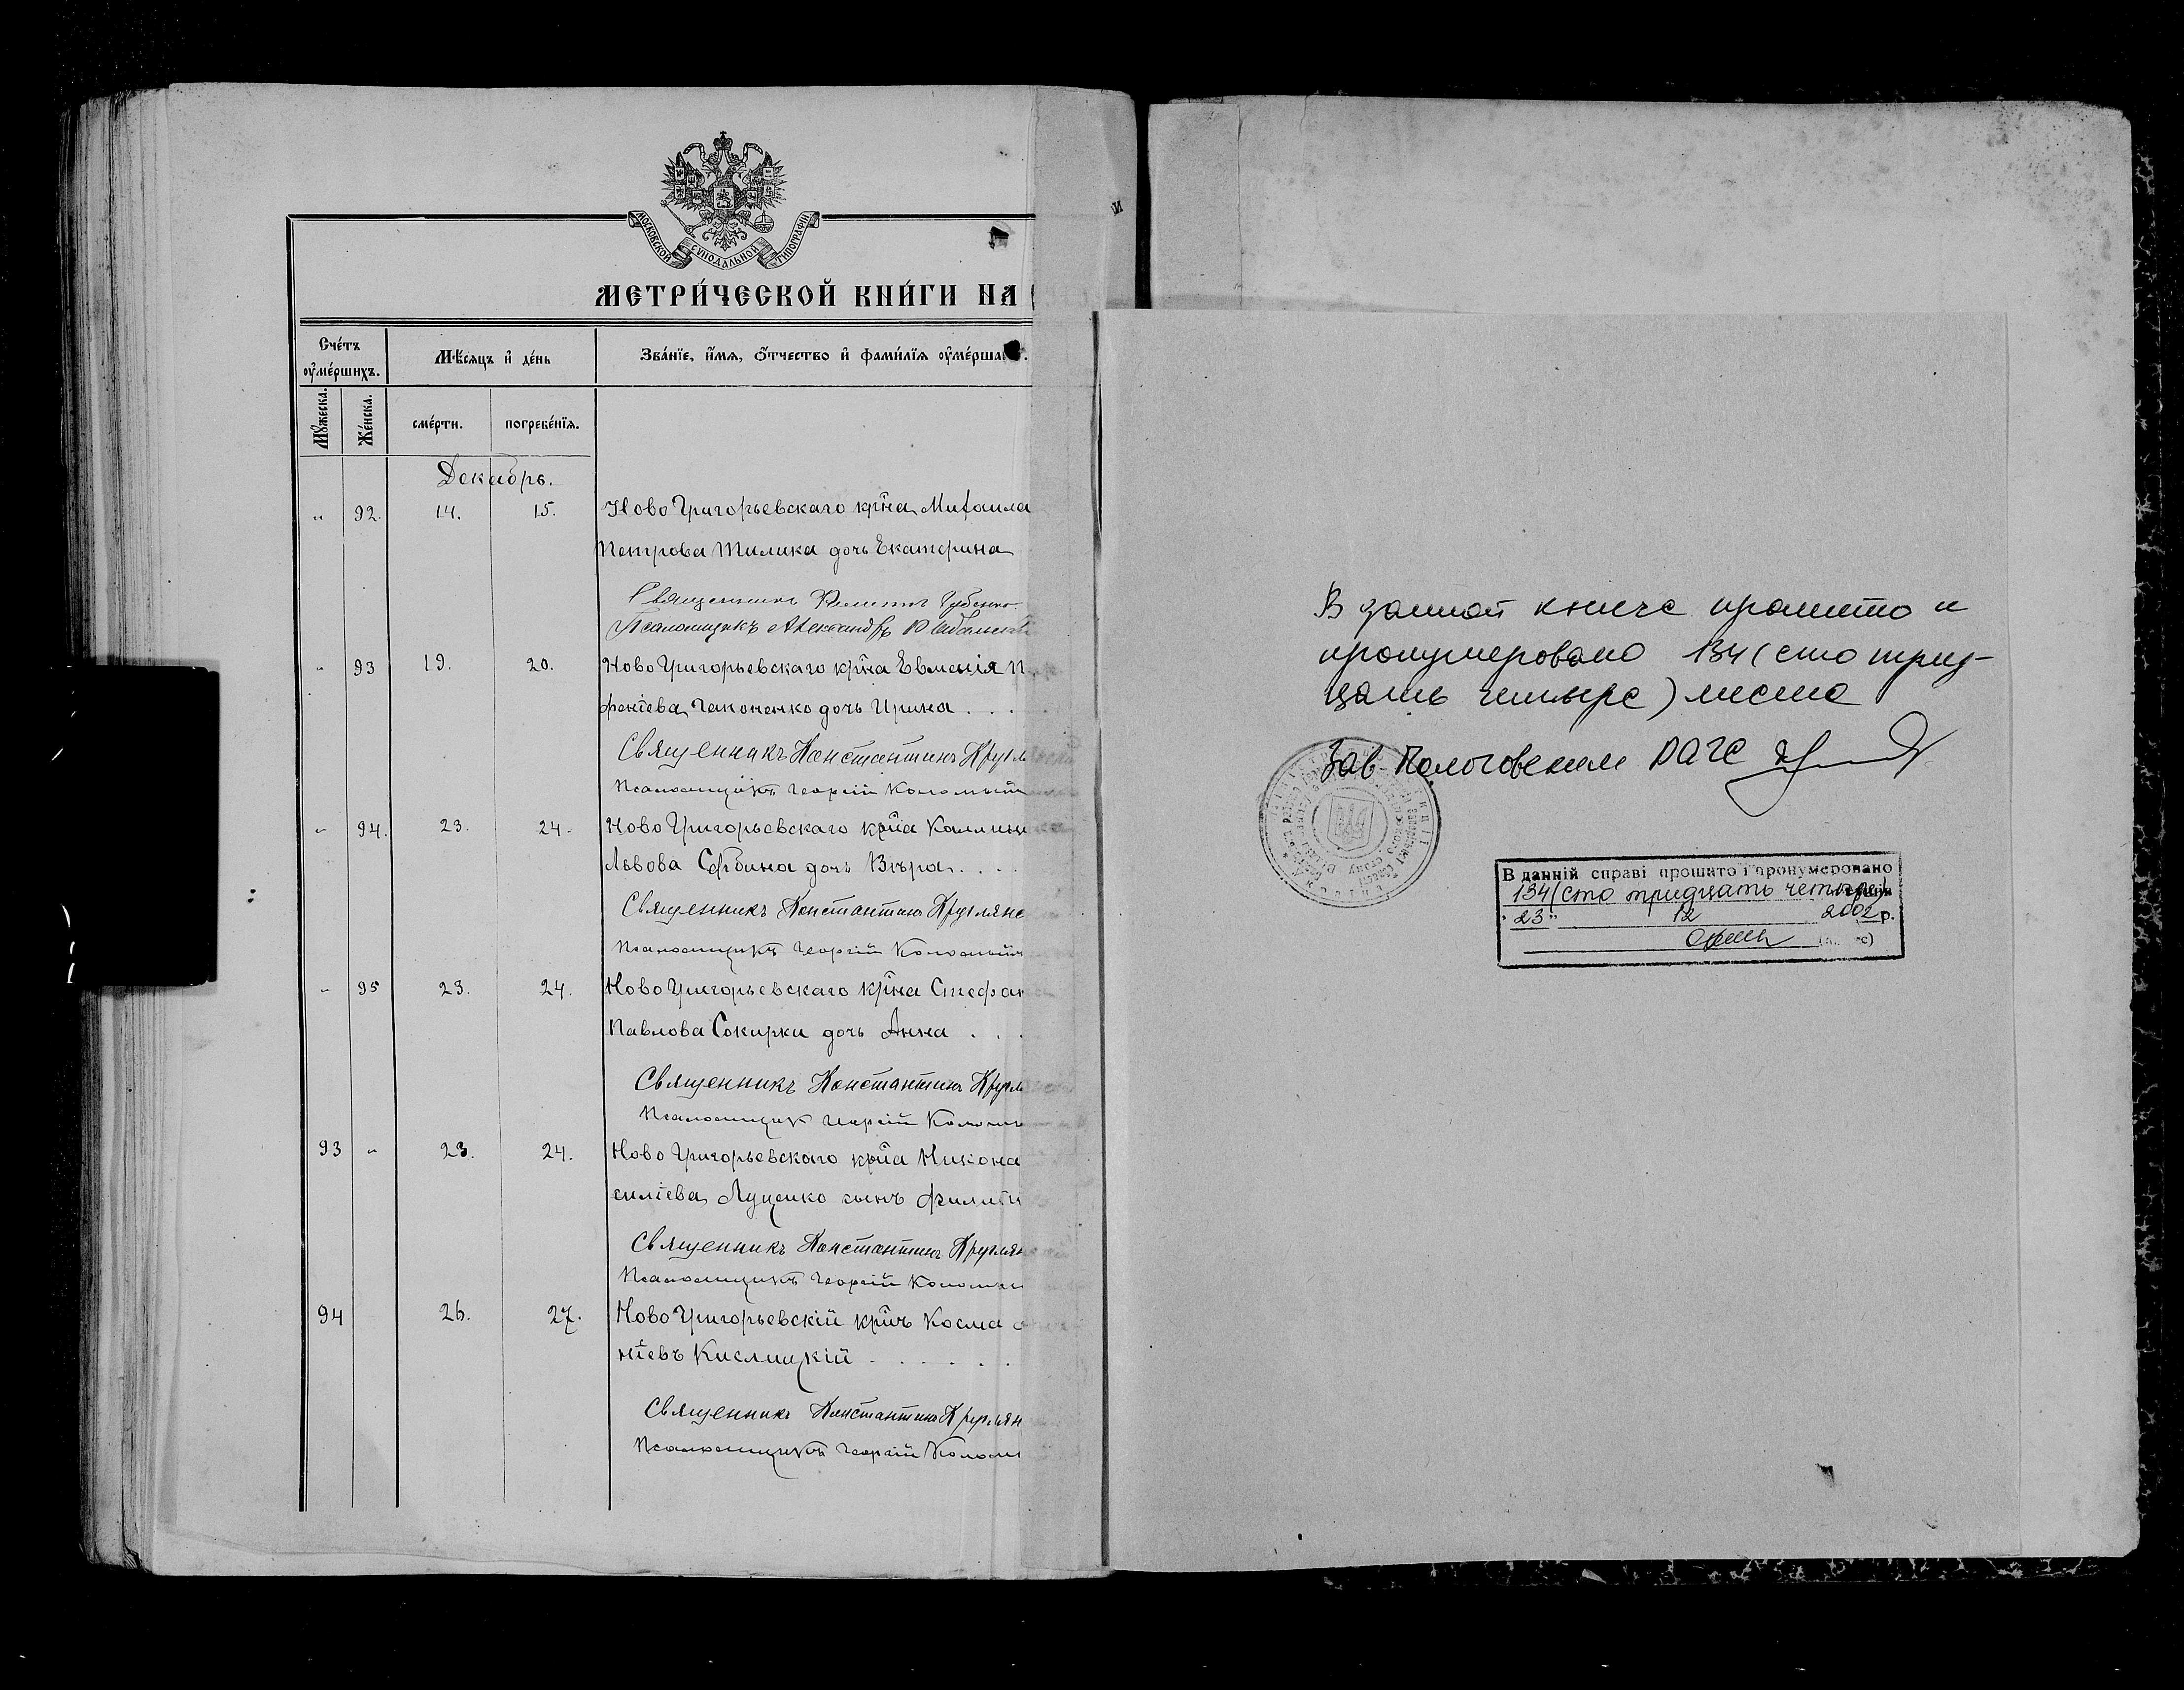 МОСКОВСКОЙ СѴНОДАЛЬНОЙ ТИПОГРАФІИ
МЕТРИ́ЧЕСКОЙ КНИ́ГИ НА
Сче́тъ оу҆ме́ршихъ.
Мѣ́сяцъ и҆ де́нь
Зва́нїе, и҆́мя, ѻ҆́тчество и҆ фами́лїя оу҆ме́рша
Мꙋ́жеска.
Же́нска.
сме́рти.
погребе́нїя.
Декабрь.
" 92. 14. 15. Ново Григорьевскаго кр̃на Михаила
Петрова Тилика дочь Екатерина
Священникъ Филиппъ Губенко
Псаломщикъ Александръ
" 93 19. 20. Ново Григорьевскаго кр̃на Евменія П
феніева Гапоненко дочь Ирина . . .
Священникъ Константинъ Кругля
Псаломщикъ Георгій Коломый
" 94. 23. 24. Ново Григорьевскаго кр̃на Каллин
Львова Сербина дочь Вѣра . . . .
Священникъ Константинъ Круглянс
Псаломщикъ Георгій Коломый
" 95 23. 24. Ново Григорьевскаго кр̃на Стефан
Павлова Сокирки дочь Анна . . .
Священникъ Константинъ Кругл
Псаломщик Георгій Колом
93 " 23. 24. Ново Григорьевскаго кр̃на Никона
силіева Луценко сынъ Филип
Священникъ Константинъ Круглян
Псаломщикъ Георгій Коломы
94 26. 27. Ново Григорьевскій кр̃нъ Косма
ніевъ Кислицкій . . . . . .
Священникъ Константинъ Круглян
Псаломщикъ Георгій Колом
В данной книге прошито и
пронумеровано 134 (сто трид-
цать четыре) листа
Зав Пологовским РАГС
В данній справі прошито і пронумеровано
134 (сто тридцать четыре)
"23" 12 2002 р.